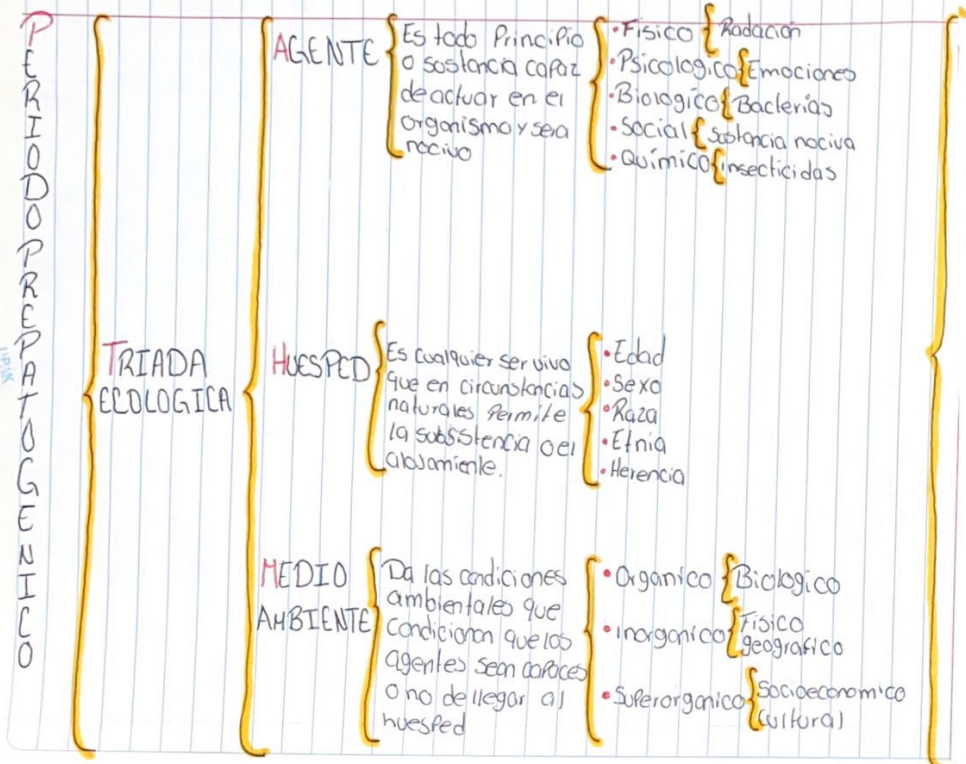 PERIODO PREPATOGENICO
TRIADA
ECOLOGICA
AGENTE
Es todo Principio
o sostancia capaz
de actuar en el
organismo y sera
nocivo
• Fisico { Radación
• Psicologico { Emociones
• Biologico { Bacterias
• Social { Sostancia nociva
• Químico { insecticidas
HUESPED
Es cualquier ser vivo
que en circunstancias
naturales Permite
la subsistencia o el
alojamiente.
• Edad
• Sexo
• Raza
• Etnia
• Herencia
MEDIO
AMBIENTE
Da las condiciones
ambientales que
condicionan que los
agentes sean capaces
o no de llegar al
huesped
• Organico { Biologico
• inorganico { Fisico
geografico
• Superorganico { Socioeconomico
cultural